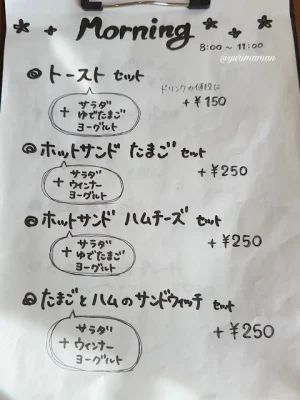 Morning
8:00〜11:00
@yurimaman
◎トースト セット
ドリンクの値段に
+¥150
+ サラダ
ゆでたまご
ヨーグルト
◎ホットサンド たまご セット
+¥250
+ サラダ
ウィンナー
ヨーグルト
◎ホットサンド ハムチーズ セット
+¥250
+ サラダ
ゆでたまご
ヨーグルト
◎たまごとハムのサンドウィッチ セット
+¥250
サラダ
+ウィンナー
ヨーグルト